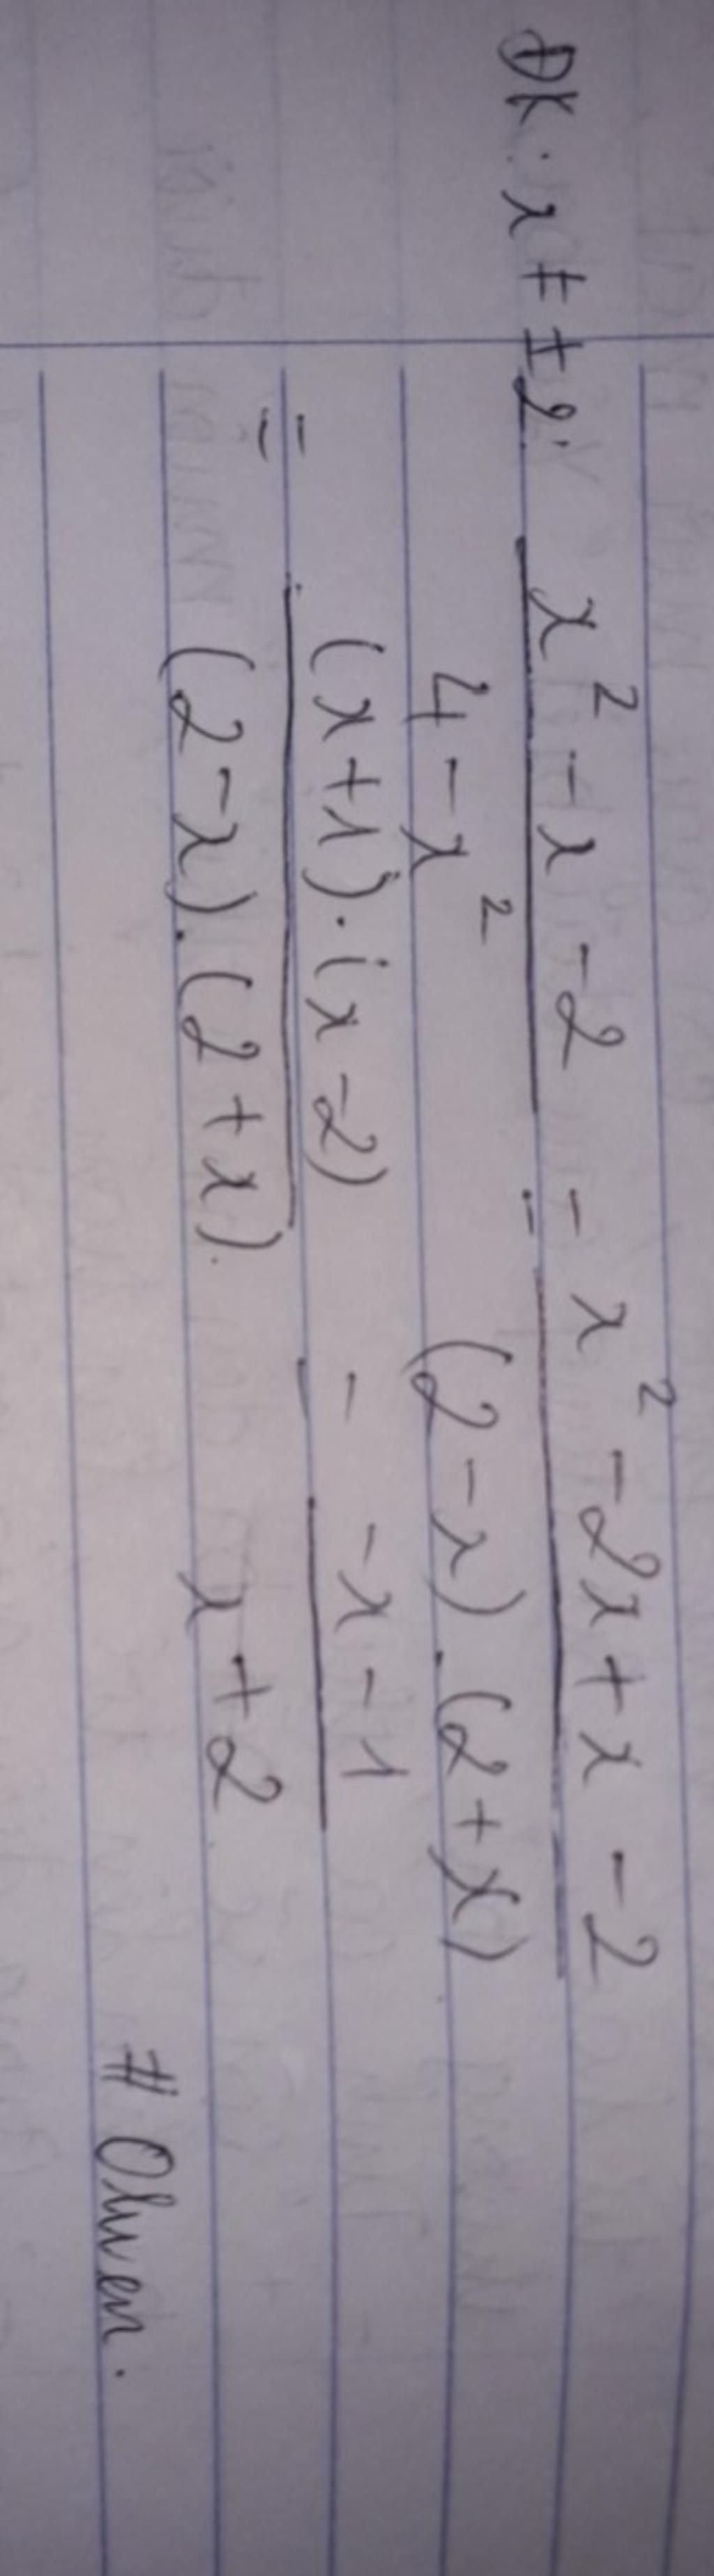 ĐK: x ≠ ±2.
x² - x - 2 / 4 - x² = x² - 2x + x - 2 / (2 - x).(2 + x)
= (x+1).(x-2) / (2-x).(2+x). = -x-1 / x+2
# Olwen.